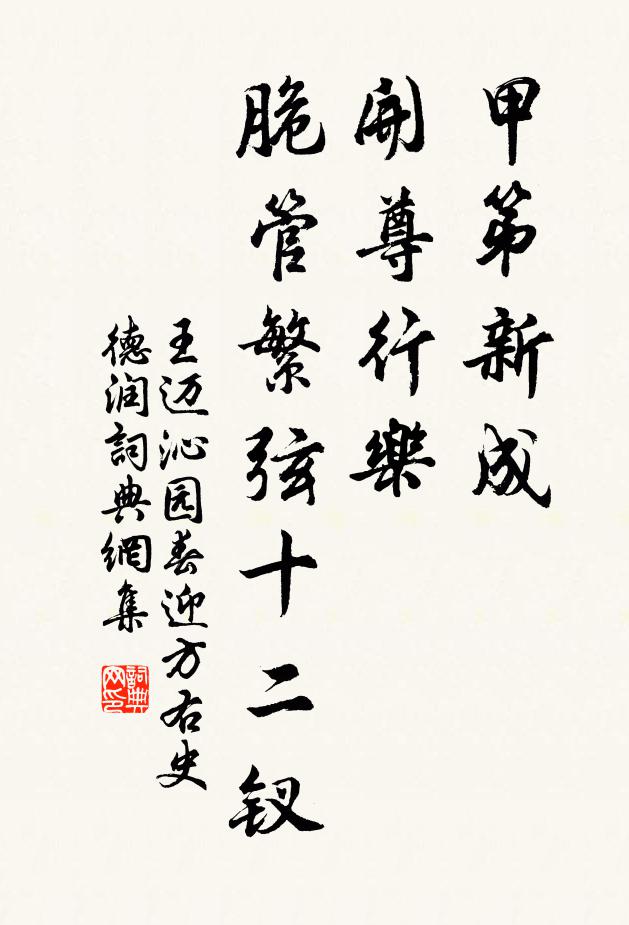 甲第新成
開尊行樂
脆管繁弦十二釵
王迈沁园春迎方右史
德润詞典網集
詞典网印